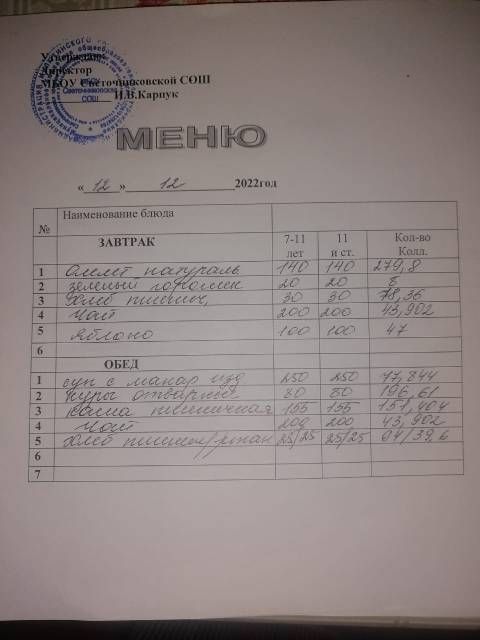 Утверждаю
Директор
МБОУ Светочниковской СОШ
И.В.Карпук
МЕНЮ
« 12 » 12 2022год
№ Наименование блюда
ЗАВТРАК 7-11 лет 11 и ст. Кол-во Колл.
1 Омлет натураль 140 140 279,8
2 зеленый горошек 20 20 8
3 Хлеб пшенич, 30 30 78,36
4 Чай 200 200 43,902
5 Яблоко 100 100 47
6
ОБЕД
1 суп с макар изд 250 250 77,844
2 куры отварные 80 80 196,61
3 каша пшеничная 155 155 151,404
4 Чай 200 200 43,902
5 Хлеб пшенич/ржан 25/25 25/25 94/39,6
6
7